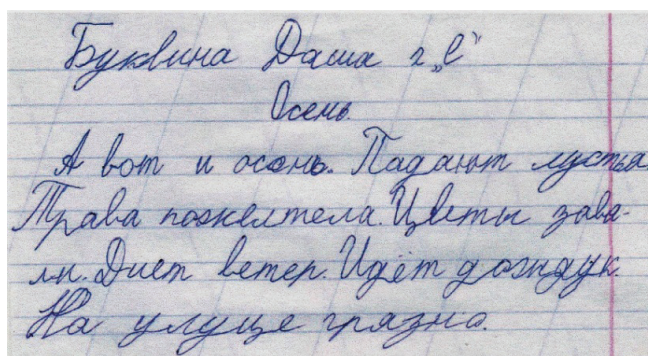 Буквина Даша 2 „С"
Осень.
А вот и осонь. Падают лустья.
Трава пожелтела. Цветы завя-
ли. Дует ветер. Идёт дождук.
На улуце грязно.